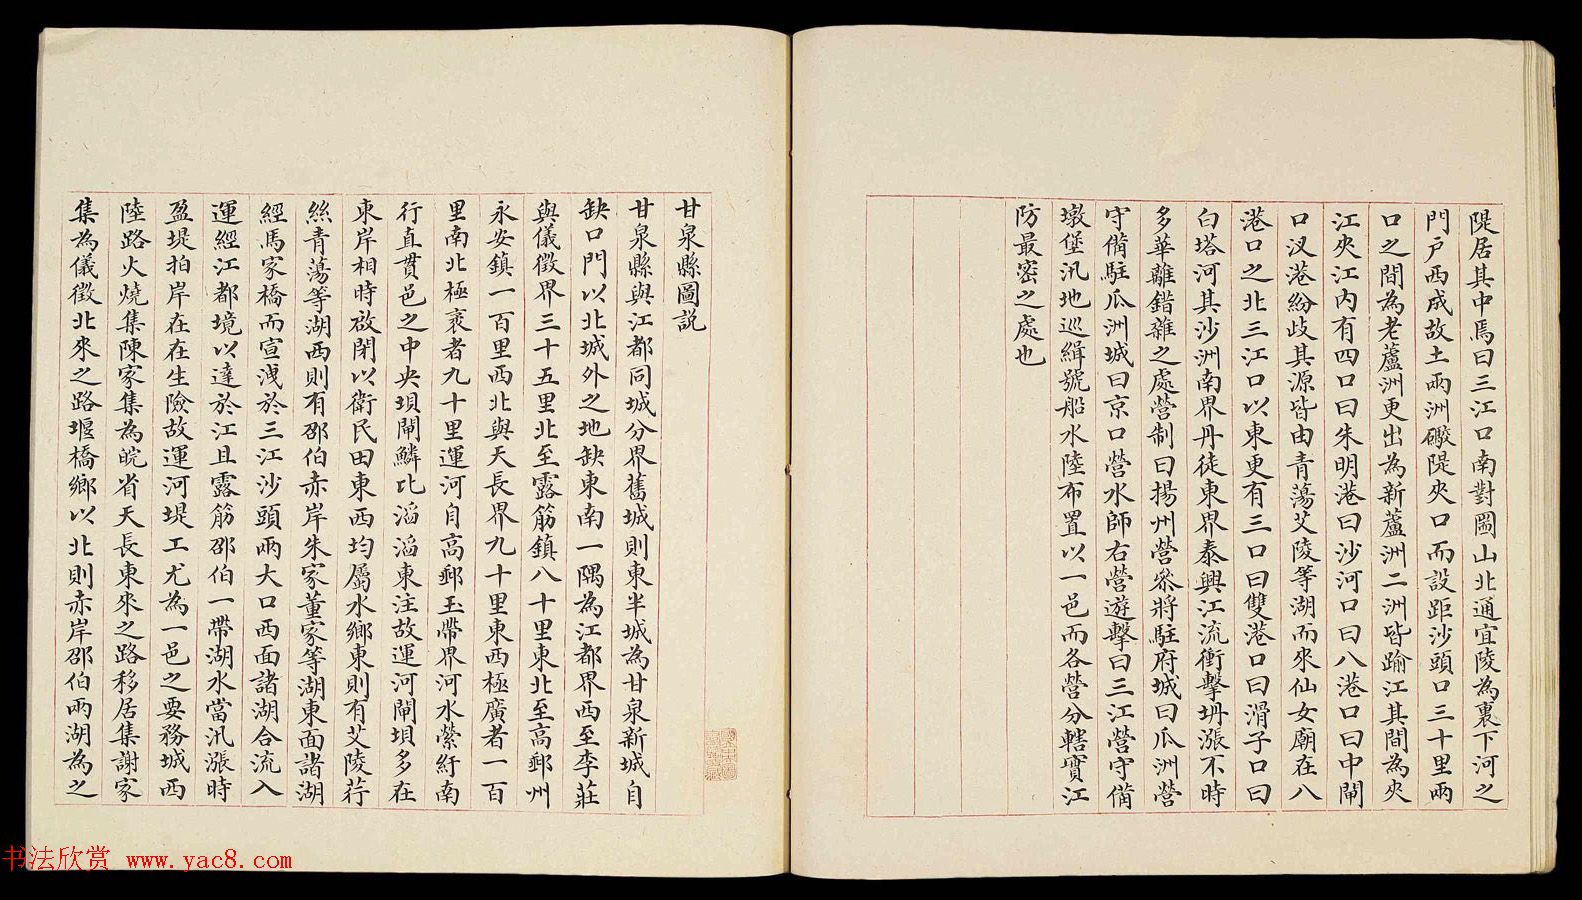 隄居其中焉曰三江口南對圌山北通宜陵為裏下河之
門戶西成故土兩洲礮隄夾口而設距沙頭口三十里兩
口之間為老蘆洲更出為新蘆洲二洲皆踰江其間為夾
江夾江內有四口曰朱明港曰沙河口曰八港口曰中閘
口汊港紛歧其源皆由青蕩艾陵等湖而來仙女廟在八
港口之北三江口以東更有三口曰雙港口曰滑子口曰
白塔河其沙洲南界丹徒東界泰興江流衝擊坍漲不時
多華離錯雜之處營制曰揚州營叅將駐府城曰瓜洲營
守備駐瓜洲城曰京口營水師右營遊擊曰三江營守備
墩堡汛地巡緝號船水陸布置以一邑而各營分轄實江
防最密之處也
甘泉縣圖說
甘泉縣與江都同城分界舊城則東半城為甘泉新城自
缺口門以北城外之地缺東南一隅為江都界西至李莊
與儀徵界三十五里北至露筋鎮八十里東北至高郵州
永安鎮一百里西北與天長界九十里東西極廣者一百
里南北極袤者九十里運河自高郵玉帶界河水縈紆南
行直貫邑之中央垻閘鱗比滔滔東注故運河閘垻多在
東岸相時啟閉以衛民田東西均屬水鄉東則有艾陵荇
絲青蕩等湖西則有邵伯赤岸朱家董家等湖東面諸湖
經馬家橋而宣洩於三江沙頭兩大口西面諸湖合流入
運經江都境以達於江且露筋邵伯一帶湖水當汛漲時
盈堤拍岸在在生險故運河堤工尤為一邑之要務城西
陸路火燒集陳家集為皖省天長東來之路移居集謝家
集為儀徵北來之路堰橋鄉以北則赤岸邵伯兩湖為之
书法欣赏 www.yac8.com